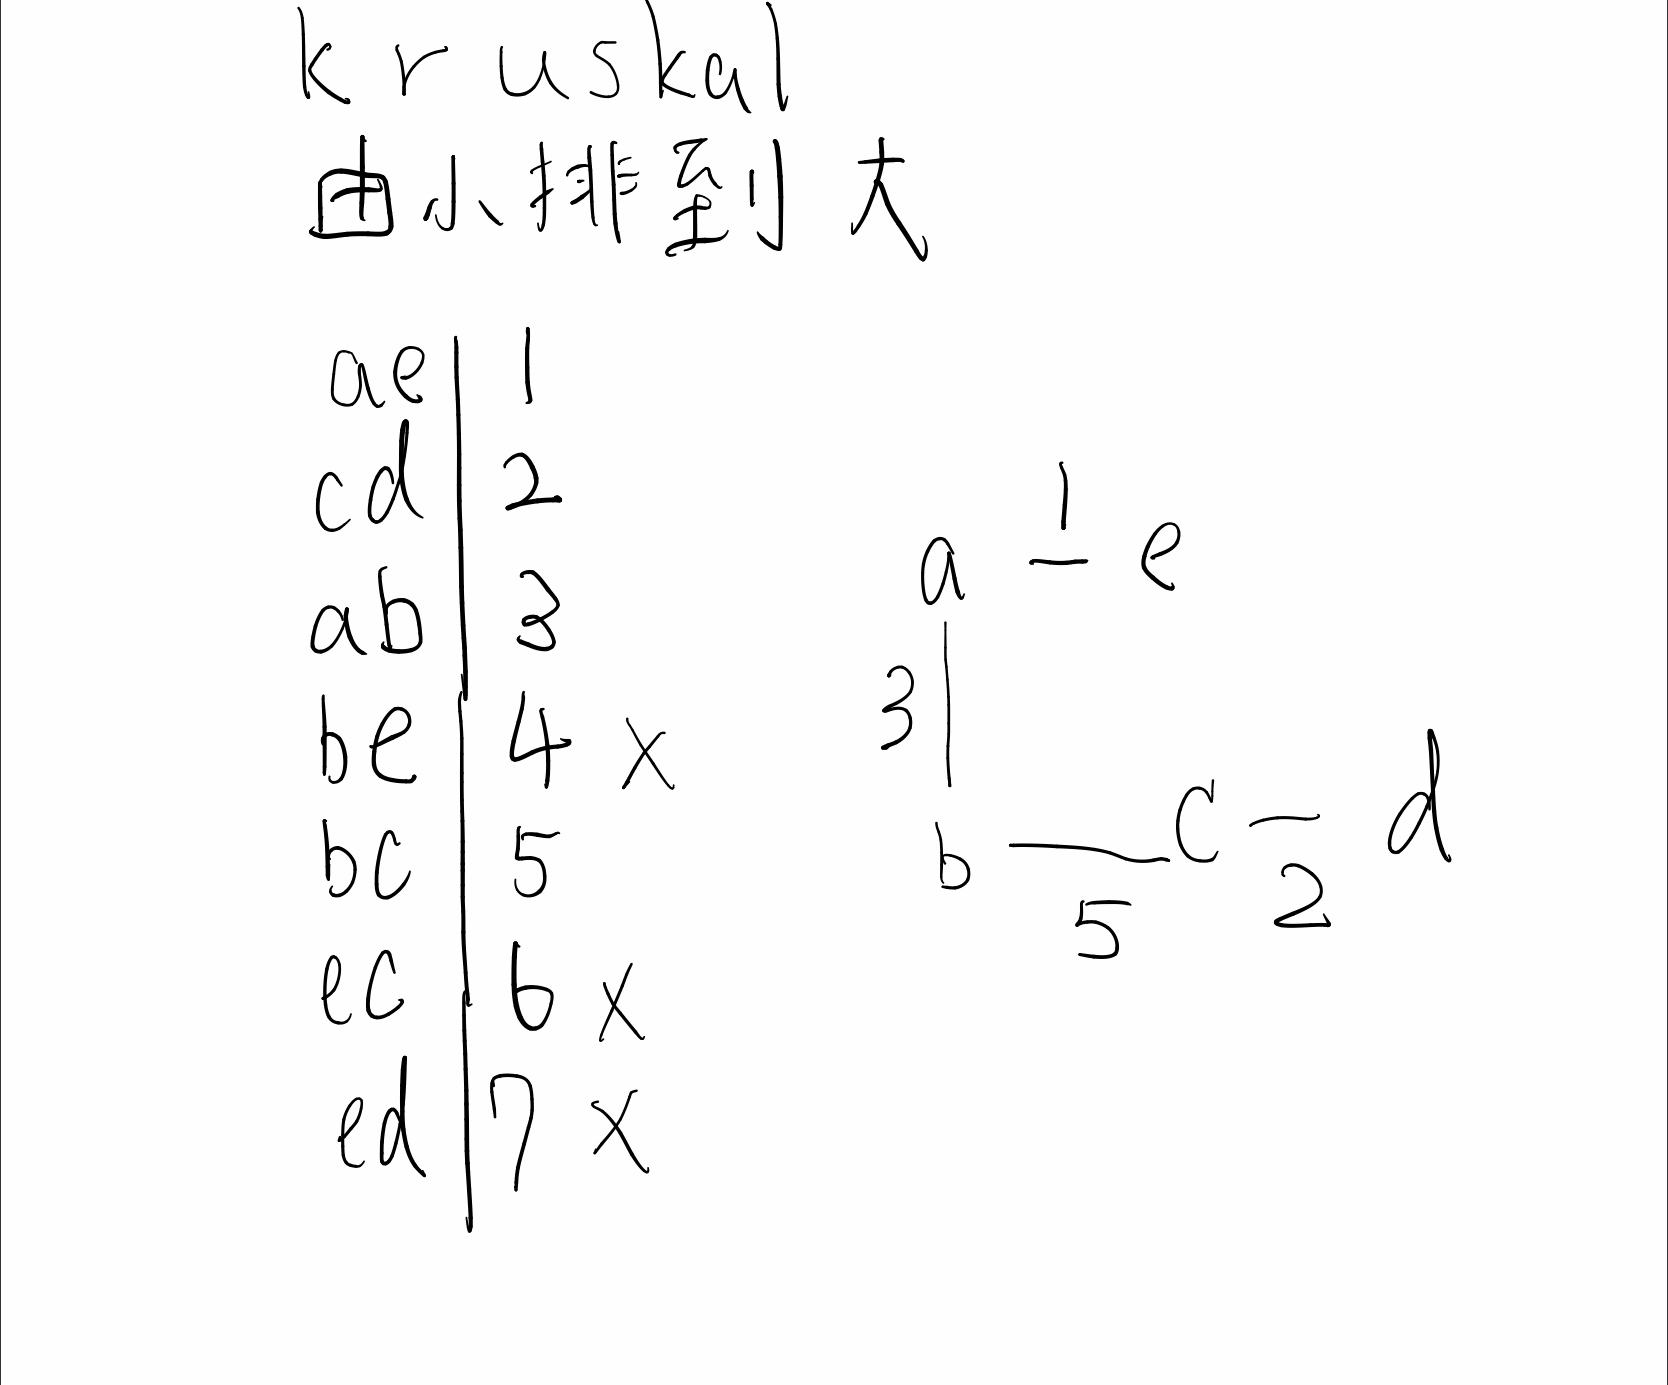 kruskal
由小排到大
ae 1
cd 2
ab 3
be 4 x
bc 5
ec 6 x
ed 7 x
a 1 e
3
b 5 c 2 d